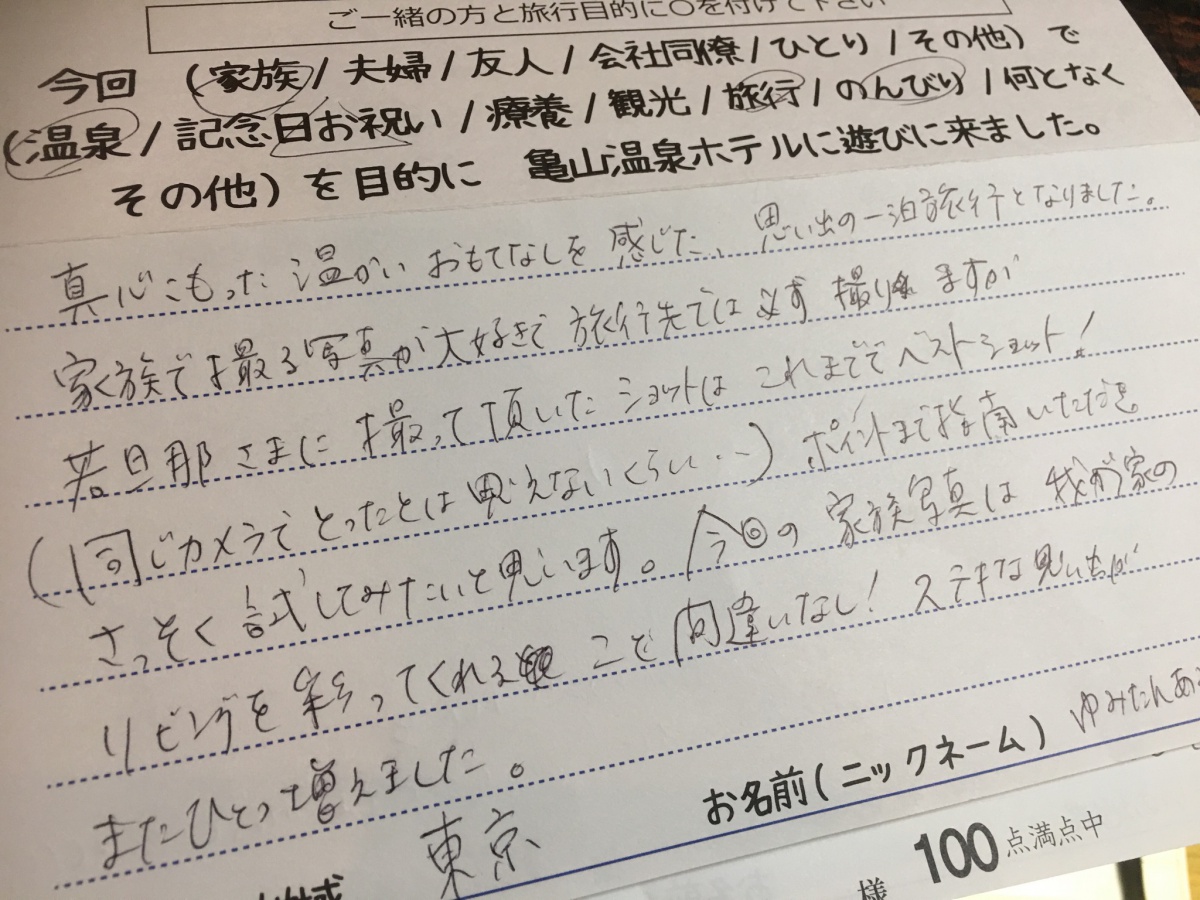 ご一緒の方と旅行目的に○を付けて下さい
今回 (家族/夫婦/友人/会社同僚/ひとり/その他)で
(温泉/記念日お祝い/療養/観光/旅行/のんびり/何となく
その他)を目的に 亀山温泉ホテルに遊びに来ました。
真心こもった温かい おもてなしを 感じた、思い出の一泊旅行となりました。
家族で撮る写真が大好きで 旅行先では必ず 撮りますが
若旦那さまに 撮って頂いた ショットは これまでで ベストショット!
(同じカメラで とったとは 思えないくらい…) ポイントまで指南いただき
さっそく 試してみたいと思います。今回の 家族写真は 我が家の
リビングを 彩ってくれる こと間違いなし! ステキな思い出が
またひとつ増えました。
東京
お名前(ニックネーム) ゆみたんあ
様 100点満点中